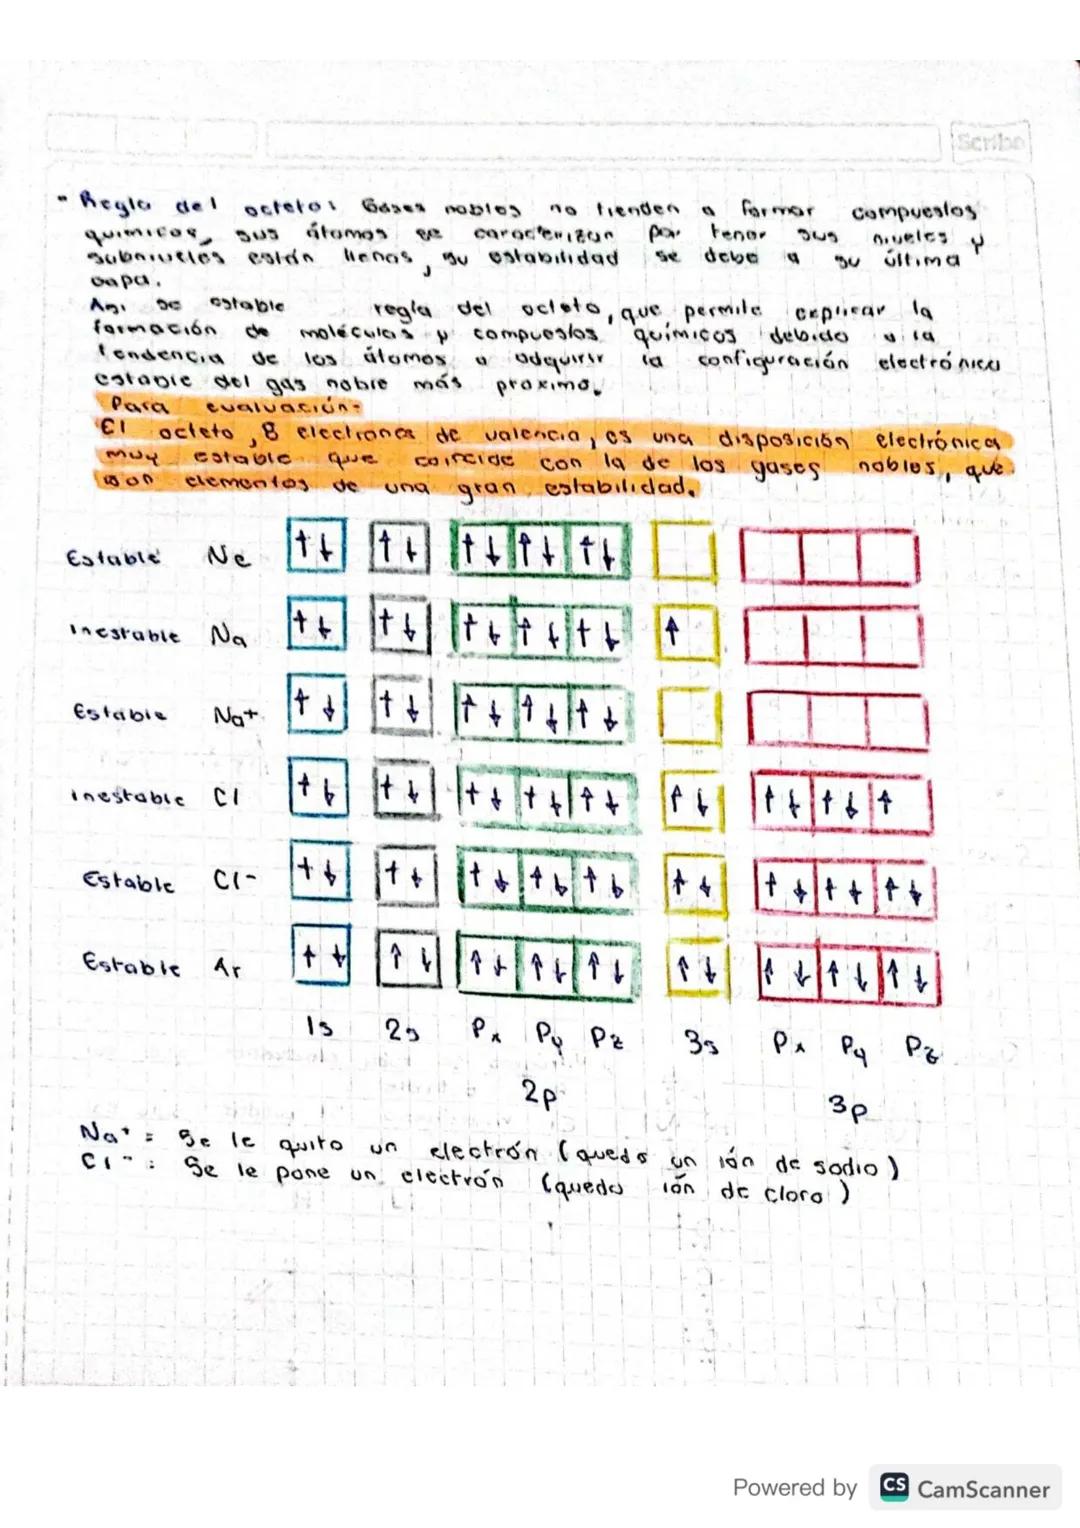 Scribe
- Regla del octeto: Gases nobles no tienden a formar compuestos
quimicos, sus átomos se caracterizan por tener sus niveles y
subniveles están llenos, su estabilidad se debe a su última
capa.
Asi se estable regla del octeto, que permite explicar la
formación de moléculas y compuestos químicos debido a la
tendencia de los átomos a adquirir la configuración electrónica
estable del gas noble más proximo.
Para evaluación:
El octeto, 8 electrones de valencia, es una disposición electrónica
muy estable que coincide con la de los gases nobles, que
son elementos de una gran estabilidad.
Estable Ne ↑↓ ↑↓ ↑↓ ↑↓ ↑↓
inestable Na ↑↓ ↑↓ ↑↓ ↑↓ ↑↓ ↑
Estable Na+ ↑↓ ↑↓ ↑↓ ↑↓ ↑↓
inestable Cl ↑↓ ↑↓ ↑↓ ↑↓ ↑↓ ↑↓ ↑↓ ↑↓ ↑
Estable Cl- ↑↓ ↑↓ ↑↓ ↑↓ ↑↓ ↑↓ ↑↓ ↑↓ ↑↓
Estable Ar ↑↓ ↑↓ ↑↓ ↑↓ ↑↓ ↑↓ ↑↓ ↑↓ ↑↓
1s 2s Px Py Pz 3s Px Py Pz
2p 3p
Na+ = Se le quito un electrón (quedo un ión de sodio)
Cl- : Se le pone un electrón (queda ión de cloro)
Powered by CS CamScanner